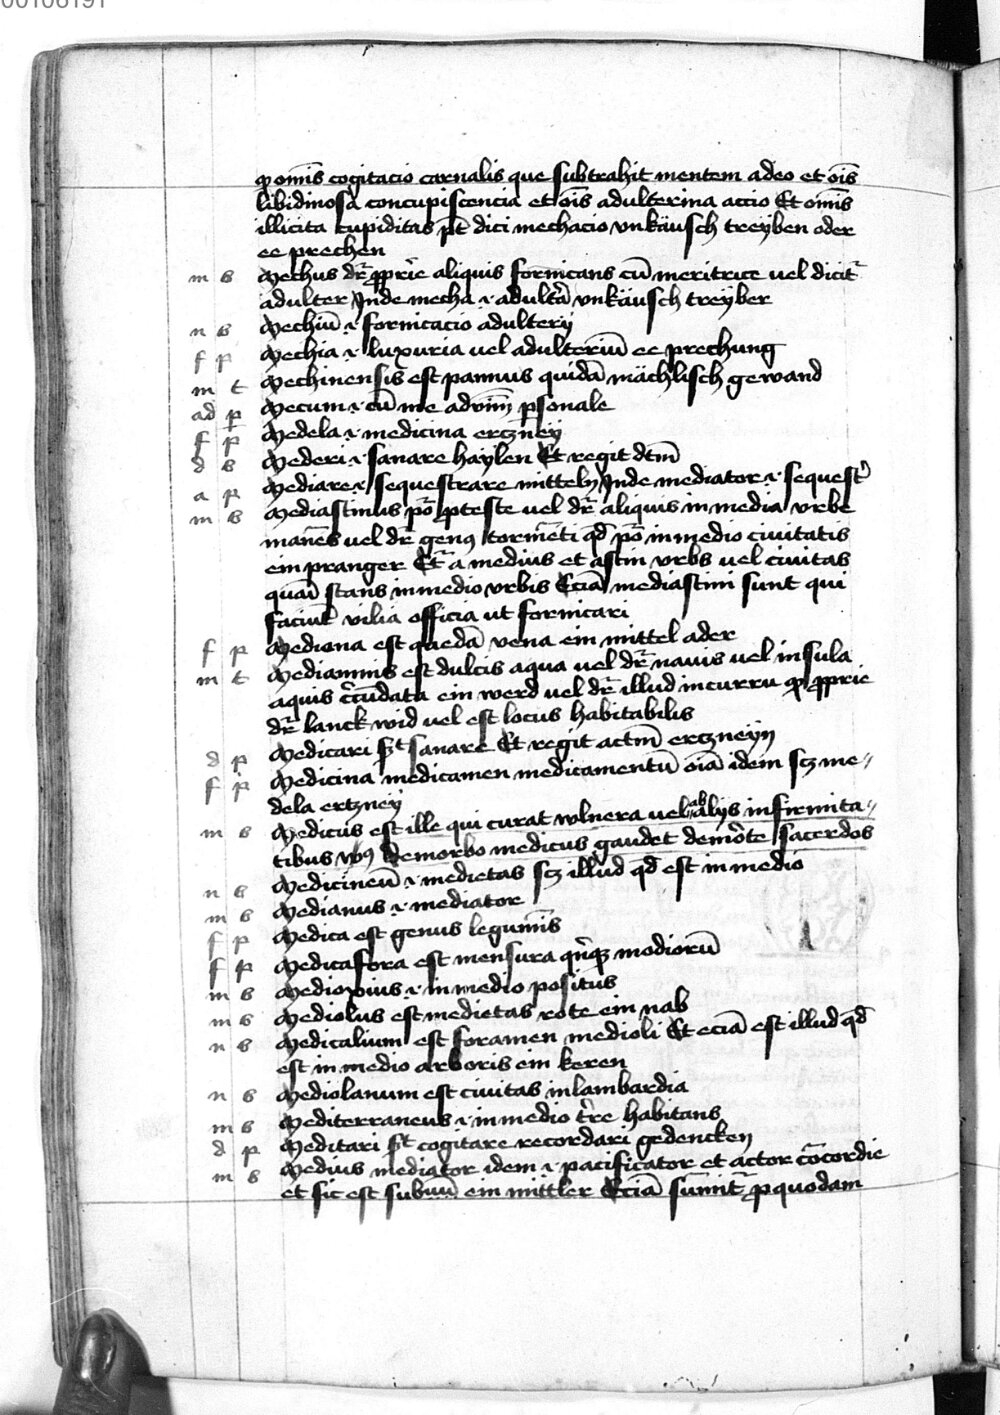 00106191
ꝙ omīs cogitacio carnalis que subtrahit mentem a deo et oīs
libidinosa concupiscencia et oīs adulterina accio Et omīs
illicita cupiditas pt̄ dici mechacio vnkäusch treyben oder
ee prechen
m s Mechus dr̄ ꝓprie aliquis fornicans cū meritrice vel dicit᷑
adulter Inde mecha .i. adult̄a vnkäusch treyber
n s Mechiū .i. fornicacio adultery
f p Mechia .i. luxuria vel adulteriū ee prechung
m t Mechinensis est pannus quidā mächlisch gewand
ad p Mecum .i. cū me ad personale
f p Medela .i. medicina erczney
d s Mederi .i. sanare haylen Et regit dtm̄
a p Mediare .i. sequestrare mitteln Inde mediator .i. sequest̉
m s Mediastinus vel dr̄ aliquis in media vrbe
manēs vel dr̄ genꝰ tormēti qd̄ in medio ciuitatis
ein pranger a medius et astin vrbs vel ciuitas
quasi stans in medio vrbis Eciā mediastini sunt qui
faciūt vilia officia ut fornicari
f p Mediana est quedā vena ein mittel ader
m t Mediamnis est dulcis aqua vel dr̄ nauis vel insula
aquis c̉cūdata ein werd vel dr̄ illud in curru ꝙ ꝓprie
dr̄ lanckwid vel est locus habitabilis
d p Medicari sanare Et regit actm̄ erczneyn
f p Medicina medicamen medicamentū oīa idem scꝫ me〃
dela ertzney
m s Medicus est ille qui curat wlnera vel ab alijs infirmita〃
tibus De morbo medicus gaudet de mo̊te sacerdos
n s Medicineū .i. medietas scꝫ illud qd̄ est in medio
m s Medianus .i. mediator
f p Medica est genus legumīs
f p Medicafora est mensura modiorū
m s Medioxius .i. in medio positus
m s Mediolus est medietas rote ein nab
n s Medicalium est foramen medioli Et eciā est illud qd̄
est in medio arboris ein keren
n s Mediolanum est ciuitas in lambardia
m s Mediterraneus .i. in medio t̉re habitans
d p Meditari cogitare recordari gedencken
m s Medius mediator idem .i. pacificator et actor cōcordie
et sic est subm̄ ein mittler Eciā sumit᷑ ꝓ quodam